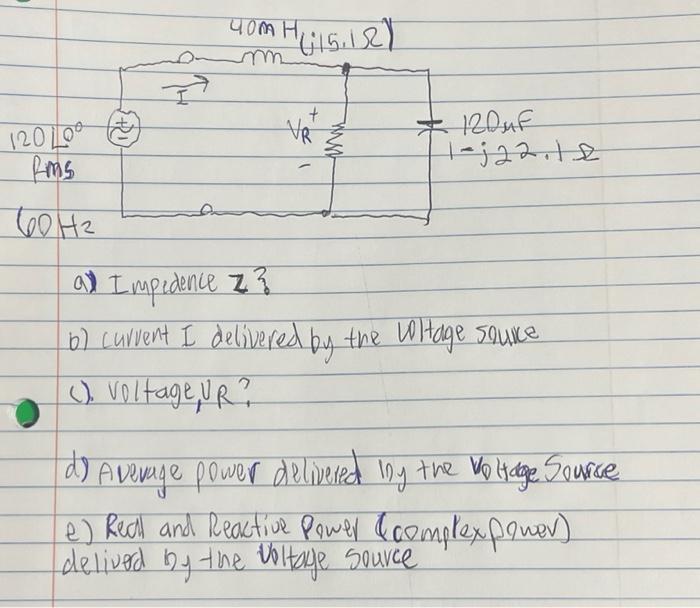 40mH (j15.1Ω)
I
120∠0°
Rms
60Hz
VR
+
-
120uF
1-j22.1Ω
a) Impedence Z?
b) current I delivered by the voltage source
c). Voltage, VR?
d) Average power delivered by the Voltage Source
e) Real and Reactive Power (complex power)
delived by the Voltage source